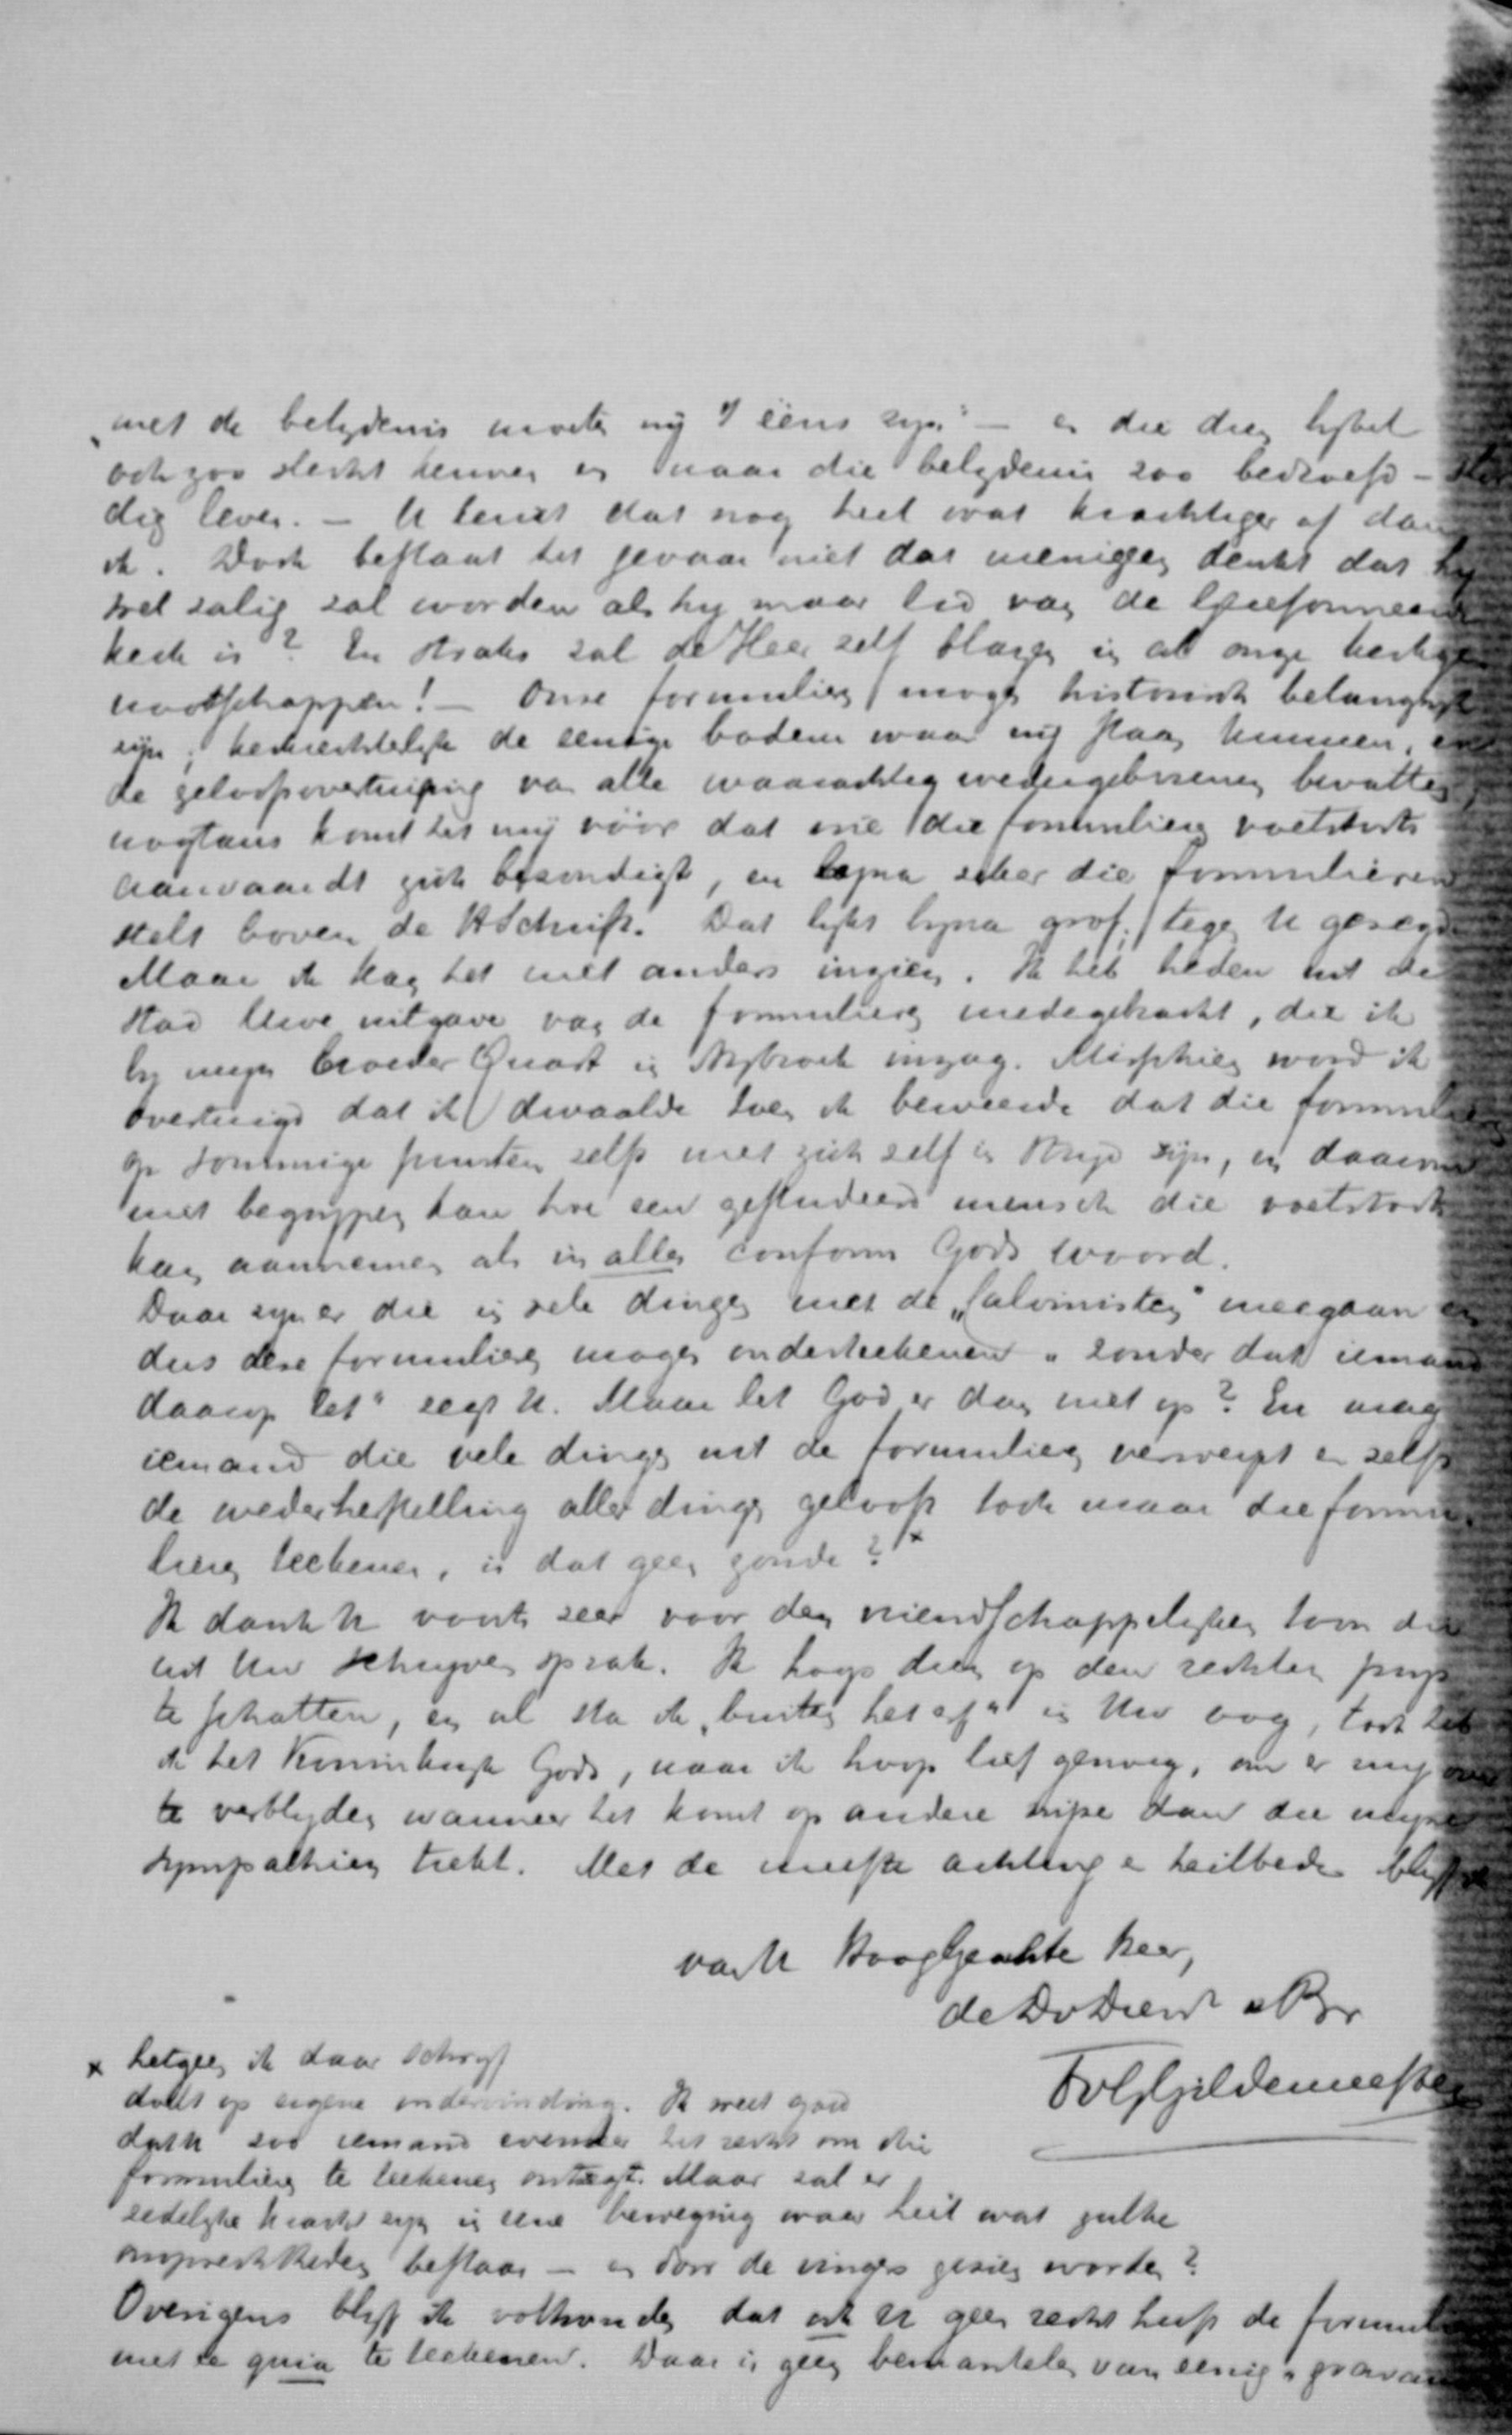 "met de belydenis moeten wy 't ééns zyn" — en die dien Bybel
ook zoo slecht kennen en naar die belydenis zoo bedroefd -
dig leven. — U kent dat nog heel wat krachtiger af dan
ik. Doch bestaat het gevaar niet dat menigeen denkt dat hy
wel zalig zal worden als hy maar lid van de Gereformeerde
kerk is? En straks zal de Heer zelf blazen in al onze kerkge
nootschappen! — Onze formulieren mogen historisch belangryk
zijn, kerkrechtelyk de eenige bodem waar wy staan kunnen, en
de geloofsovertuiging van alle waarachtig wedergeborenen bevatten,
nogtans komt het mij vóór dat wie die formulieren voetstoots
aanvaardt zich bezondigt, en byna zeker die formulieren
stelt boven de H Schrift. Dat lykt byna grof, tegen U gezegd.
Maar ik kan het niet anders inzien. Ik heb heden uit de
stad Uwe uitgave van de formulieren medegebracht, die ik
by myn broeder Quast in Nybroek inzag. Misschien word ik
overtuigd dat ik dwaalde toen ik beweerde dat die formulieren
op sommige punten zelfs met zich zelf in stryd zijn, en daarom
niet begrypen kan hoe een gestudeerd mensch die voetstoots
kan aannemen als in alles conform Gods woord.
Daar zyn er die in vele dingen met de "Calvinisten" meegaan en
dus deze formulieren mogen onderteekenen "zonder dat iemand
daarop let" zegt U. Maar let God er dan niet op? En mag
iemand die vele dingen uit de formulieren verwerpt en zelfs
de wederherstelling aller dingen gelooft toch maar die formu-
lieren teekenen, is dat geen zonde? x
Ik dank U voorts zeer voor den vriendschappelyken toon die
uit Uw schryven sprak. Ik hoop dien op den rechten prys
te schatten, en al sta ik "buiten het erf" in Uw oog, toch heb
ik het Koninkryk Gods, naar ik hoop lief genoeg, om er my over
te verblyden wanneer het komt op andere wijze dan die myne
sympathieën trekt. Met de meeste achting en heilbede blyf ik
van U Hoog Geachte Heer,
de Dv Dienr en Br
F v Gh Gildemeester
x hetgeen ik daar schryf
doelt op eigene ondervinding. Ik weet goed
dat U zoo iemand evenzeer het recht om die
formulieren te teekenen ontzegt. Maar zal er
zedelyke kracht zyn in eene beweging waar heel wat zulke
onoprechtheden bestaan — en door de vingers gezien worden?
Overigens blyf ik volhouden dat ook U geen recht heeft de formul
met een quia te teekenen. Daar is geen bemantelen van eenig